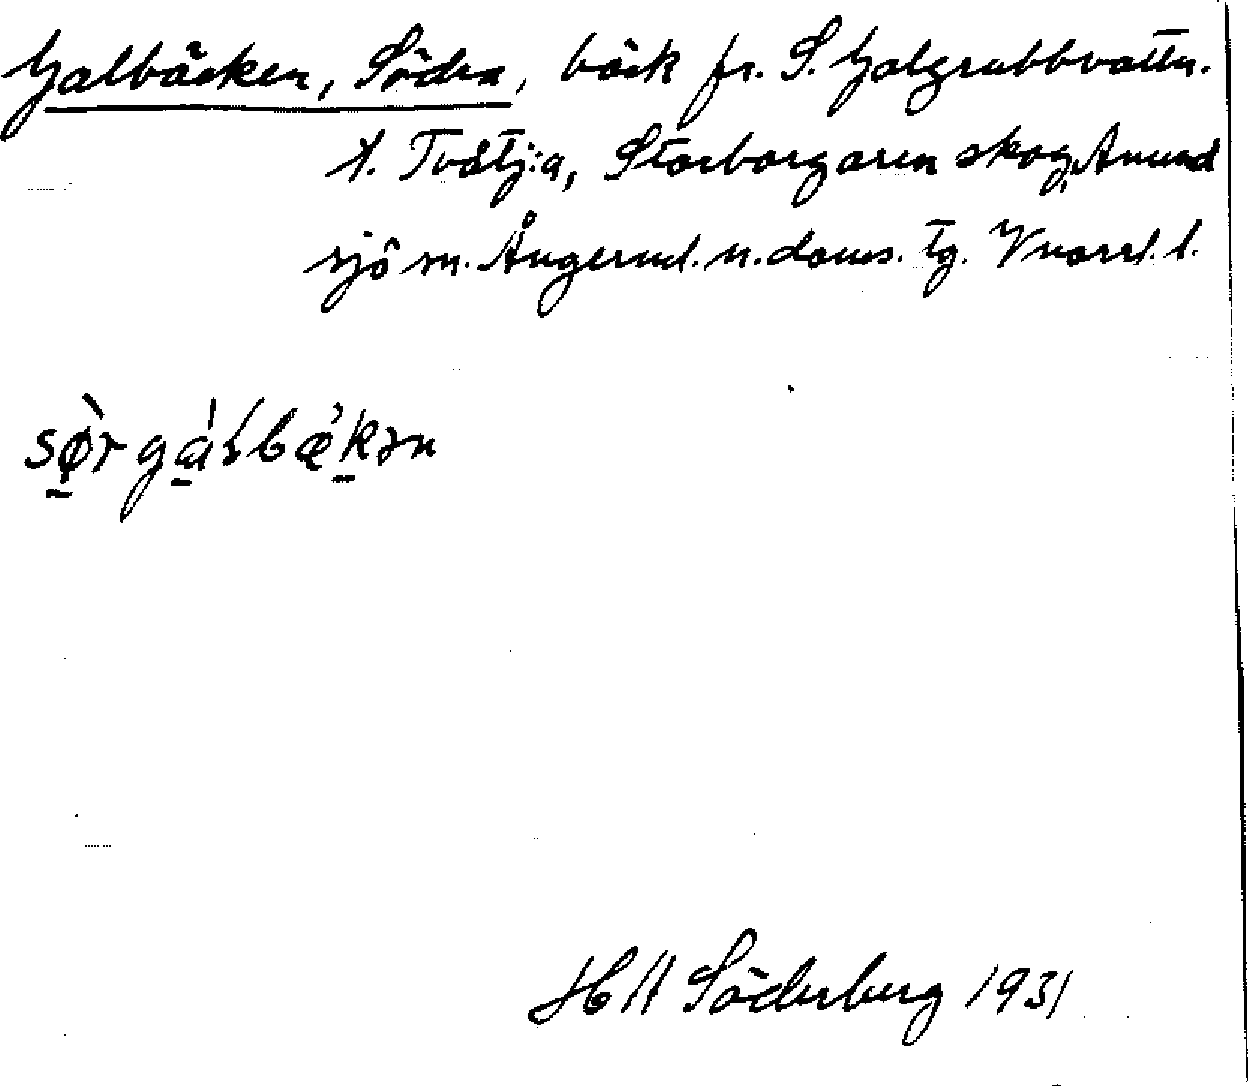 Galbäcken, Södra, bäck fr. S. Galgrubbvattn.
t. Tvåtj:a, Storborgaren skog, Anund
sjö sn. Ångerml. n. doms. tg. Vnorrl. l.
sø̀r gásbækən
H A Söderberg 1931